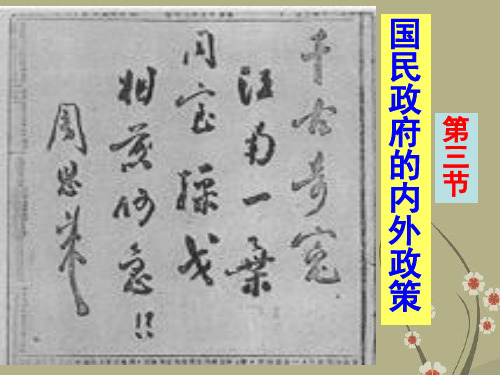 第三节
国民政府的内外政策
千古奇冤
江南一葉
同室操戈
相煎何急!!
周恩来